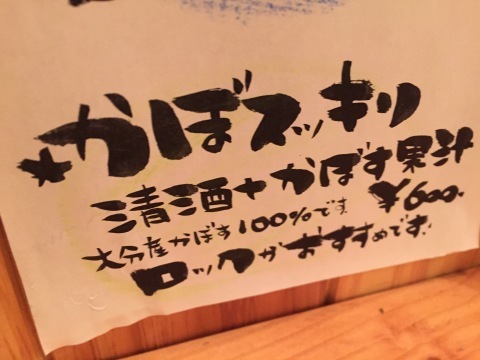 *かぼスッキリ
清酒+かぼす果汁
¥600.
大分産かぼす100%です
ロックがおすすめです。